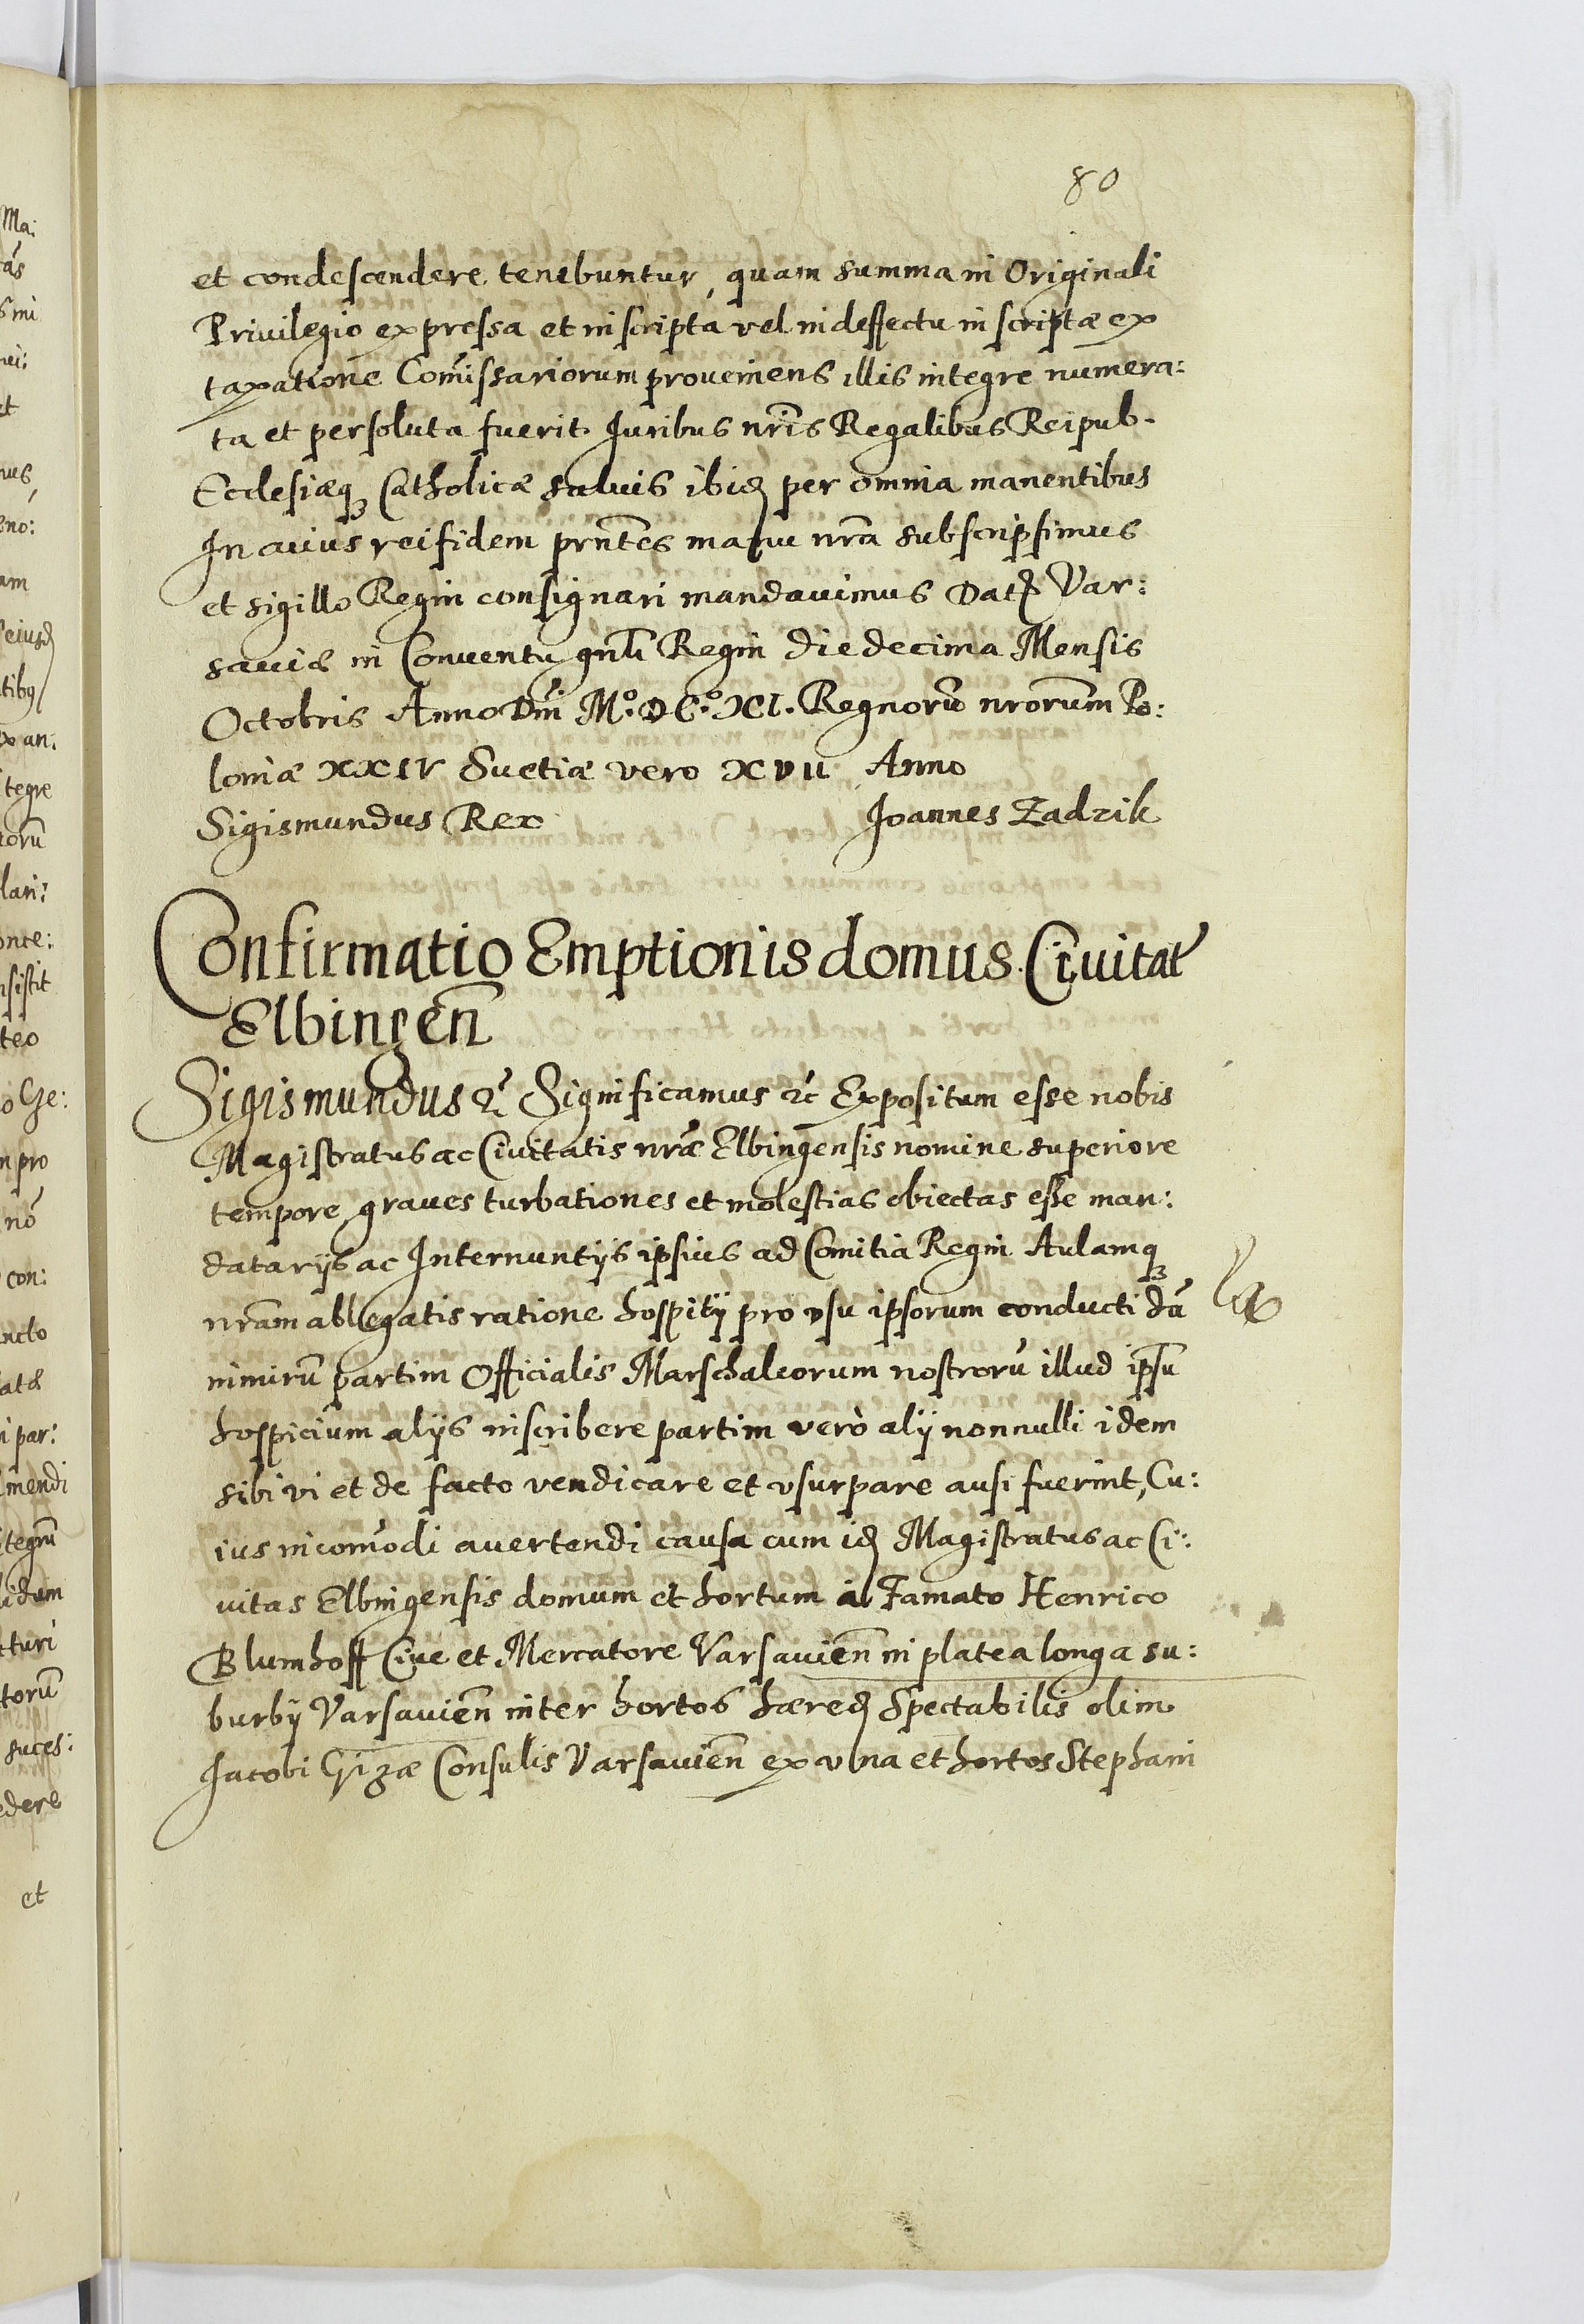 80
et condescendere tenebuntur, quam summa in Originali
Privilegio expressa et inscripta vel in deffectu inscriptæ ex
taxatione Com̃issariorum proveniens illis integre numera:
ta et persoluta fuerit Iuribus nr̃is Regalibus Reipub.
Ecclesiæq₃ Catholicæ salvis ibid per omnia manentibus
In cuius rei fidem pñtes manu nr̃a subscripsimus
et sigillo Regni consignari mandauimus Dat Var:
saviæ in Conventu gnl̃i Regni die decima Mensis
Octobris Anno Dm̃i M⁰. DC⁰. XI. Regnorũ nrorum̃ Po:
loniæ XXIV Suetiæ vero XVII Anno
Sigismundus Rex Joannes Zadzik
Confirmatio Emptionis domus Ciuitat
Elbingen̄
Sigismundus ꝛc̃ Significamus ꝛc̃ Expositum esse nobis
Magistratus ac Ciuitatis nr̃æ Elbingensis nomine superiore
tempore graues turbationes et molestias obiectas esse man:
datarijs ac Internuntijs ipsius ad Comitia Regni Aulamq₃
nr̃am ablegatis ratione hospitij pro vsu ipsorum conducti dũ
nimirũ partim Officialis Marschalcorum nostrorũ illud ipsũ
hospicium alijs inscribere partim verò alij nonnulli idem
sibi vi et de facto vendicare et vsurpare ausi fuerint, Cu:
ius incom̃odi auertendi causa cum id Magistratus ac Ci:
uitas Elbingensis domum et hortum a Famato Henrico
Blumhoff Ciue et Mercatore Varsauien̄ in platea longa su:
burbij Varsauien̄ inter hortos hæred Spectabilis olim
Jacobi Gizæ Consulis Varsauien̄ ex vna et hortos Stephani